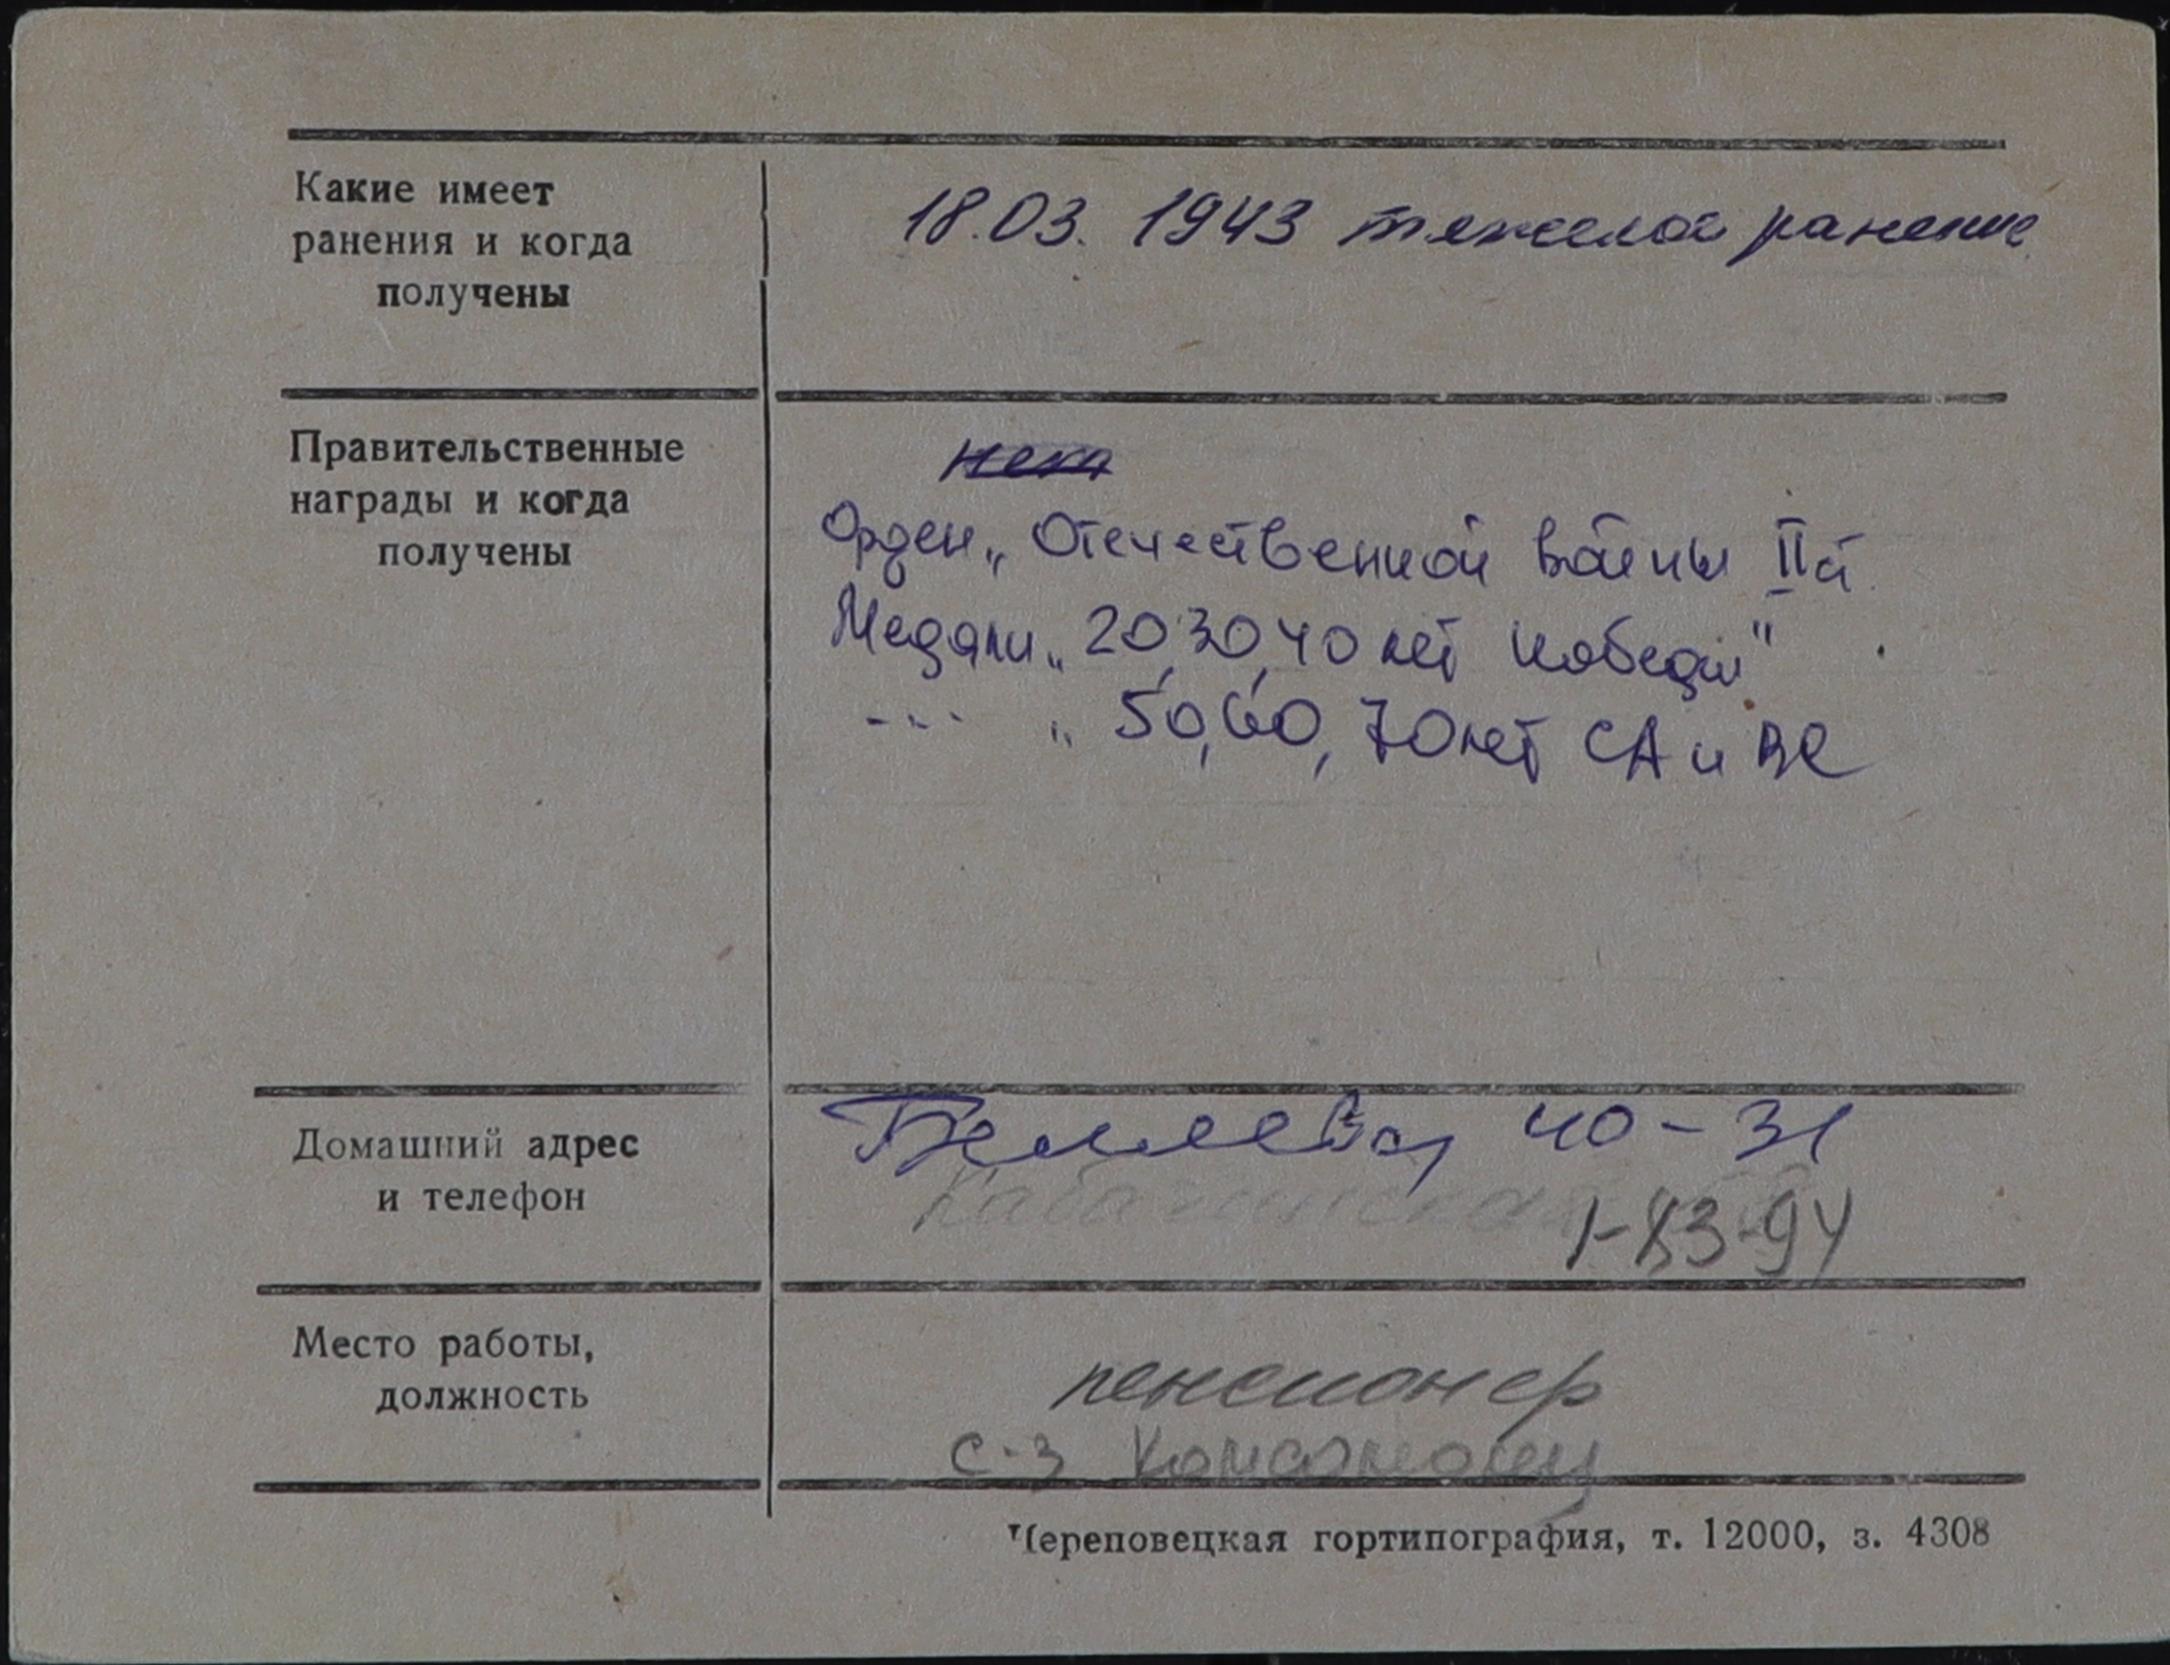 Какие имеет
ранения и когда
получены
18.03. 1943 тяжелое ранение
Правительственные
награды и когда
получены
нет
Орден „ Отечественной войны II й
Медали „ 20, 30, 40 лет победы"
-··- „ 50, 60, 70 лет СА и ВС
Домашний адрес
и телефон
Беляева, 40-31
1-83-94
Место работы,
должность
пенсионер
с-з Комсомолец
Череповецкая гортипография, т. 12000, з. 4308